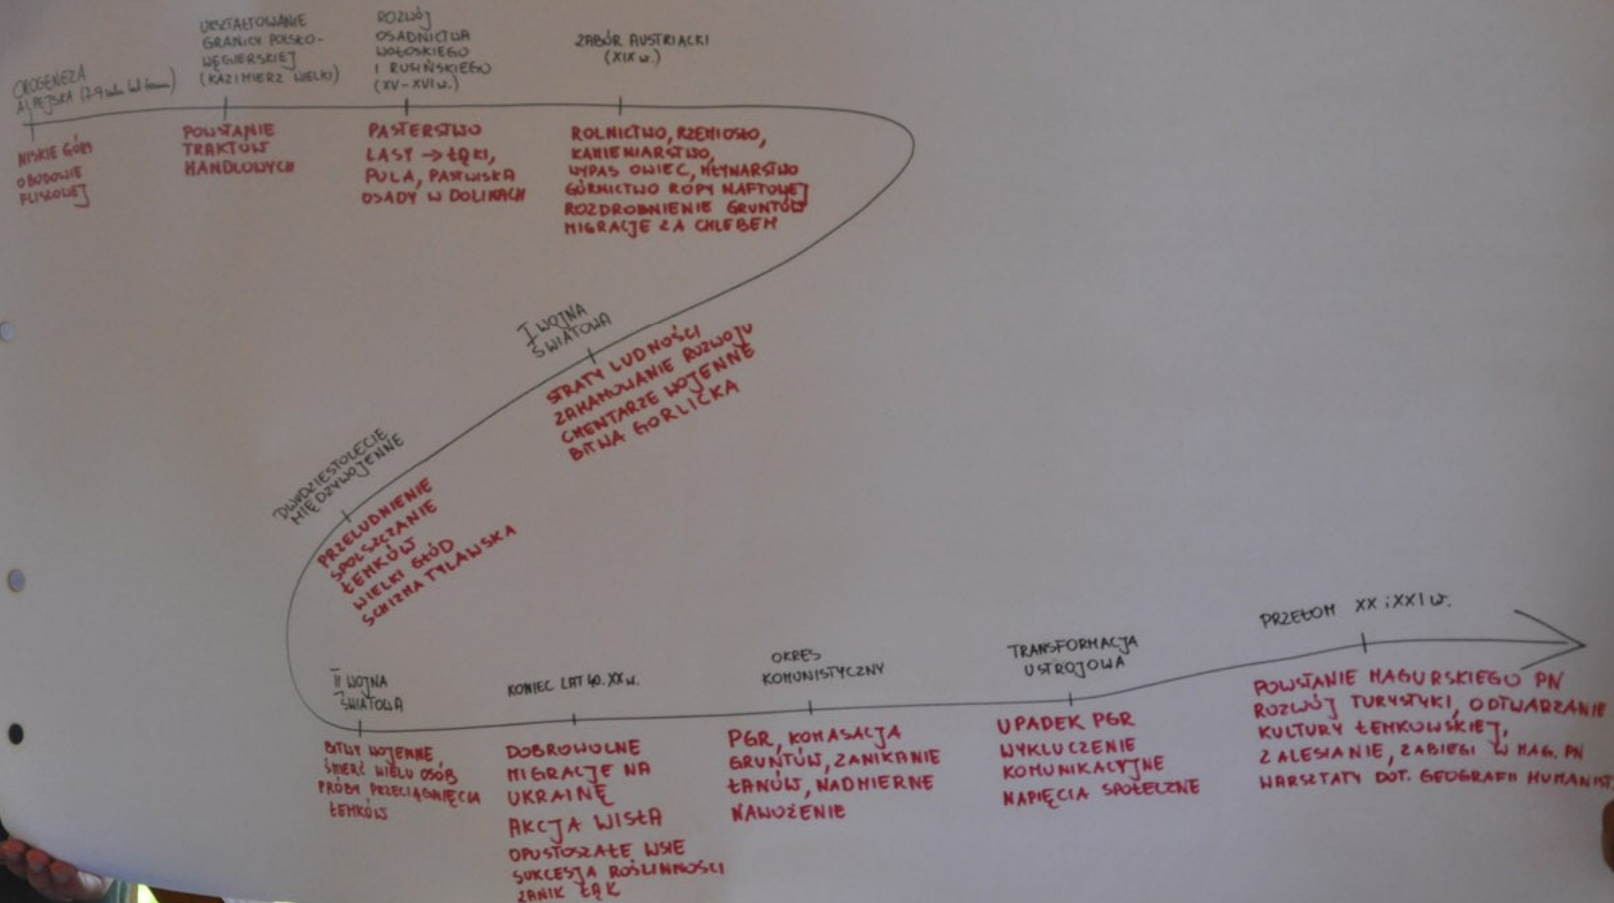 OROGENEZA
ALPEJSKA (7-9 mln lat temu)
NISKIE GÓRY
O BUDOWIE
FLISZOWEJ
UKSZTAŁTOWANIE
GRANICY POLSKO-
WĘGIERSKIEJ
(KAZIMIERZ WIELKI)
POWSTANIE
TRAKTÓW
HANDLOWYCH
ROZWÓJ
OSADNICTWA
WOŁOSKIEGO
I RUSIŃSKIEGO
(XV-XVI w.)
PASTERSTWO
LASY → ŁĄKI,
POLA, PASTWISKA
OSADY W DOLINACH
ZABÓR AUSTRIACKI
(XIX w.)
ROLNICTWO, RZEMIOSŁO,
KAMIENIARSTWO,
WYPAS OWIEC, MŁYNARSTWO
GÓRNICTWO ROPY NAFTOWEJ
ROZDROBNIENIE GRUNTÓW
MIGRACJE ZA CHLEBEM
I WOJNA
ŚWIATOWA
STRATY LUDNOŚCI
ZAHAMOWANIE ROZWOJU
CMENTARZE WOJENNE
BITWA GORLICKA
DWUDZIESTOLECIE
MIĘDZYWOJENNE
PRZELUDNIENIE
SPOLSZCZANIE
ŁEMKÓW
WIELKI GŁÓD
SCHIZMA TYLAWSKA
II WOJNA
ŚWIATOWA
BITWY WOJENNE,
ŚMIERĆ WIELU OSÓB
PRÓBY PRZECIĄGNIĘCIA
ŁEMKÓW
KONIEC LAT 40. XX w.
DOBROWOLNE
MIGRACJE NA
UKRAINĘ
AKCJA WISŁA
OPUSTOSZAŁE WSIE
SUKCESJA ROŚLINNOŚCI
ZANIK ŁĄK
OKRES
KOMUNISTYCZNY
PGR, KOMASACJA
GRUNTÓW, ZANIKANIE
ŁANÓW, NADMIERNE
NAWOŻENIE
TRANSFORMACJA
USTROJOWA
UPADEK PGR
WYKLUCZENIE
KOMUNIKACYJNE
NAPIĘCIA SPOŁECZNE
PRZEŁOM XX i XXI w.
POWSTANIE MAGURSKIEGO PN
ROZWÓJ TURYSTYKI, ODTWARZANIE
KULTURY ŁEMKOWSKIEJ,
ZALESIANIE, ZABIEGI W MAG. PN
WARSZTATY DOT. GEOGRAFII HUMANIST.